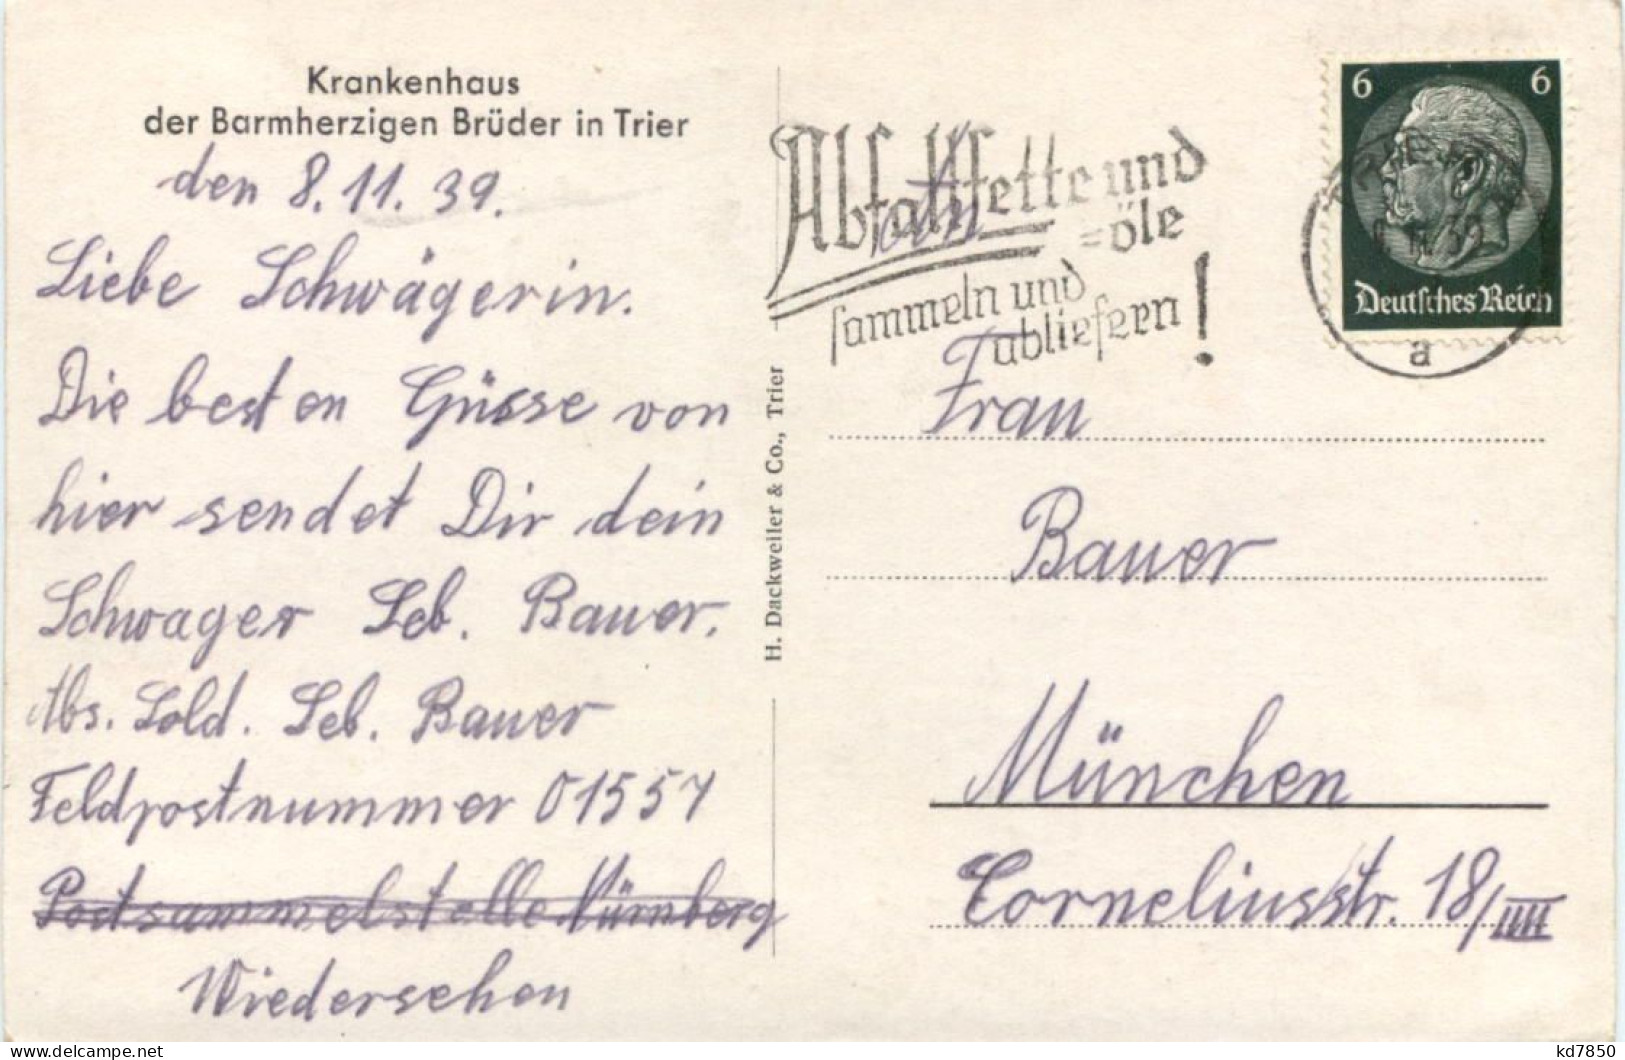 Krankenhaus
der Barmherzigen Brüder in Trier
den 8.11.39.
Liebe Schwägerin.
Die besten Grüsse von
hier sendet Dir dein
Schwager Seb. Bauer.
Abs. Sold. Seb. Bauer
Feldpostnummer 01557
Postsammelstelle Nürnberg
Wiedersehen
H. Dackweiler & Co., Trier
Abfallfette und
=öle
sammeln und
abliefern!
6 6
11.39
Deutsches Reich
a
Frau
Bauer
München
Corneliusstr. 18/IIII
kd7850